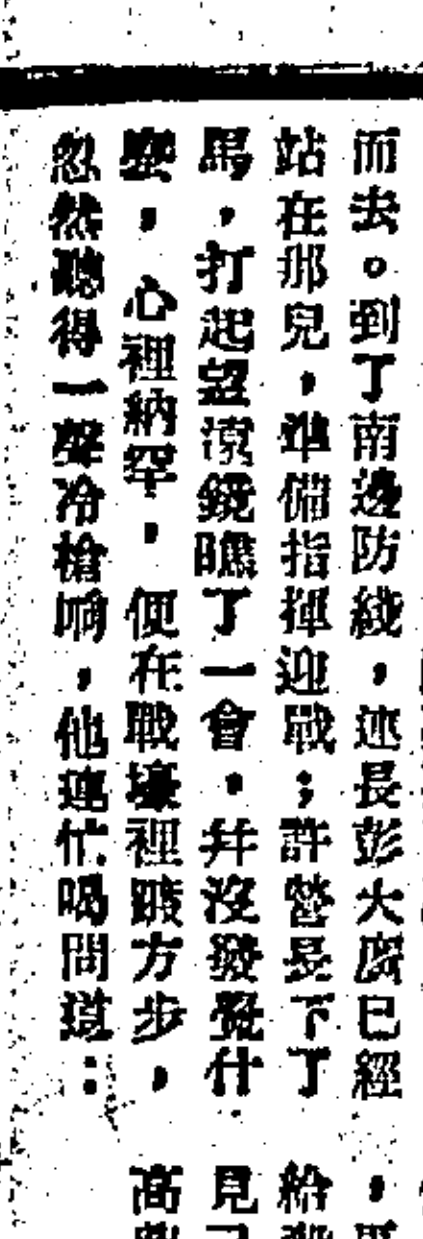 而去。到了南邊防綫，連長彭大虎已經
站在那兒，準備指揮迎戰；許營長下了
馬，打起望遠鏡瞧了一會，幷沒發覺什
麽，心裡納罕，便在戰壕裡踱方步，
忽然聽得一聲冷槍响，他連忙喝問道：
給
見
高